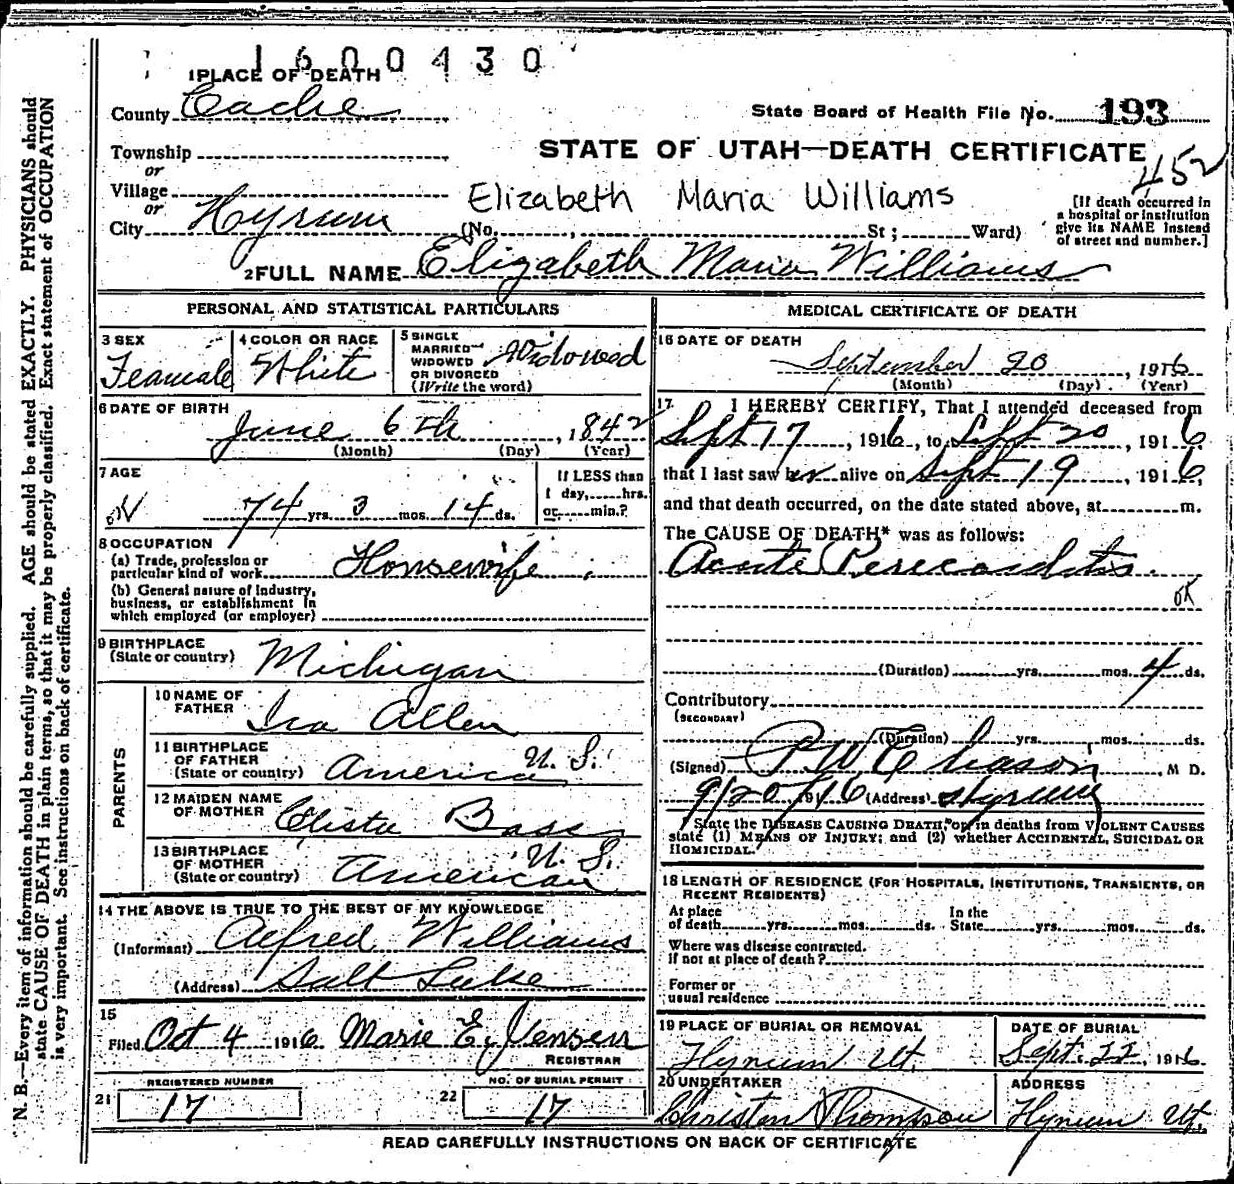 1600430
1 PLACE OF DEATH
County Cache
State Board of Health File No. 193
Township
or
Village
or
City Hyrum
STATE OF UTAH—DEATH CERTIFICATE
452
Elizabeth Maria Williams
(No. , St ; Ward)
[If death occurred in
a hospital or institution
give its NAME instead
of street and number.]
2 FULL NAME Elizabeth Maria Williams
PERSONAL AND STATISTICAL PARTICULARS
3 SEX
Feamale
4 COLOR OR RACE
White
5 SINGLE
MARRIED
WIDOWED
OR DIVORCED
(Write the word)
Widowed
6 DATE OF BIRTH
June 6th , 1842
(Month) (Day) (Year)
7 AGE
74 yrs. 3 mos. 14 ds.
If LESS than
1 day, hrs.
or min.?
8 OCCUPATION
(a) Trade, profession or
particular kind of work Housewife
(b) General nature of industry,
business, or establishment in
which employed (or employer)
9 BIRTHPLACE
(State or country) Michigan
PARENTS
10 NAME OF
FATHER Ira Allen
11 BIRTHPLACE
OF FATHER
(State or country) America U. S.
12 MAIDEN NAME
OF MOTHER Bass
13 BIRTHPLACE
OF MOTHER
(State or country) American U. S.
14 THE ABOVE IS TRUE TO THE BEST OF MY KNOWLEDGE
(Informant) Alfred Williams
(Address) Salt Lake
15
Filed Oct 4 1916 Marie E. Jensen
REGISTRAR
REGISTERED NUMBER
21 17
NO. OF BURIAL PERMIT
22 17
MEDICAL CERTIFICATE OF DEATH
16 DATE OF DEATH
September 20 , 1916
(Month) (Day) (Year)
17 I HEREBY CERTIFY, That I attended deceased from
Sept 17 , 1916, to Sept 20 , 1916
that I last saw her alive on Sept 19 , 1916,
and that death occurred, on the date stated above, at m.
The CAUSE OF DEATH* was as follows:
Acute Perecarditis.
ok
(Duration) yrs. mos. 4 ds.
Contributory
(SECONDARY)
(Duration) yrs. mos. ds.
(Signed) P W Eliason , M D.
9/20/1916 (Address) Hyrum
State the DISEASE CAUSING DEATH, or in deaths from VIOLENT CAUSES
state (1) MEANS OF INJURY; and (2) whether ACCIDENTAL, SUICIDAL OR
HOMICIDAL.
18 LENGTH OF RESIDENCE (FOR HOSPITALS, INSTITUTIONS, TRANSIENTS, OR
RECENT RESIDENTS)
At place
of death yrs. mos. ds.
In the
State yrs. mos. ds.
Where was disease contracted.
if not at place of death?
Former or
usual residence
19 PLACE OF BURIAL OR REMOVAL
Hyrum Ut.
DATE OF BURIAL
Sept. 22 1916
20 UNDERTAKER
Christen Thompson
ADDRESS
Hyrum Ut.
READ CAREFULLY INSTRUCTIONS ON BACK OF CERTIFICATE
N. B.—Every item of information should be carefully supplied. AGE should be stated EXACTLY. PHYSICIANS should
state CAUSE OF DEATH in plain terms, so that it may be properly classified. Exact statement of OCCUPATION
is very important. See instructions on back of certificate.